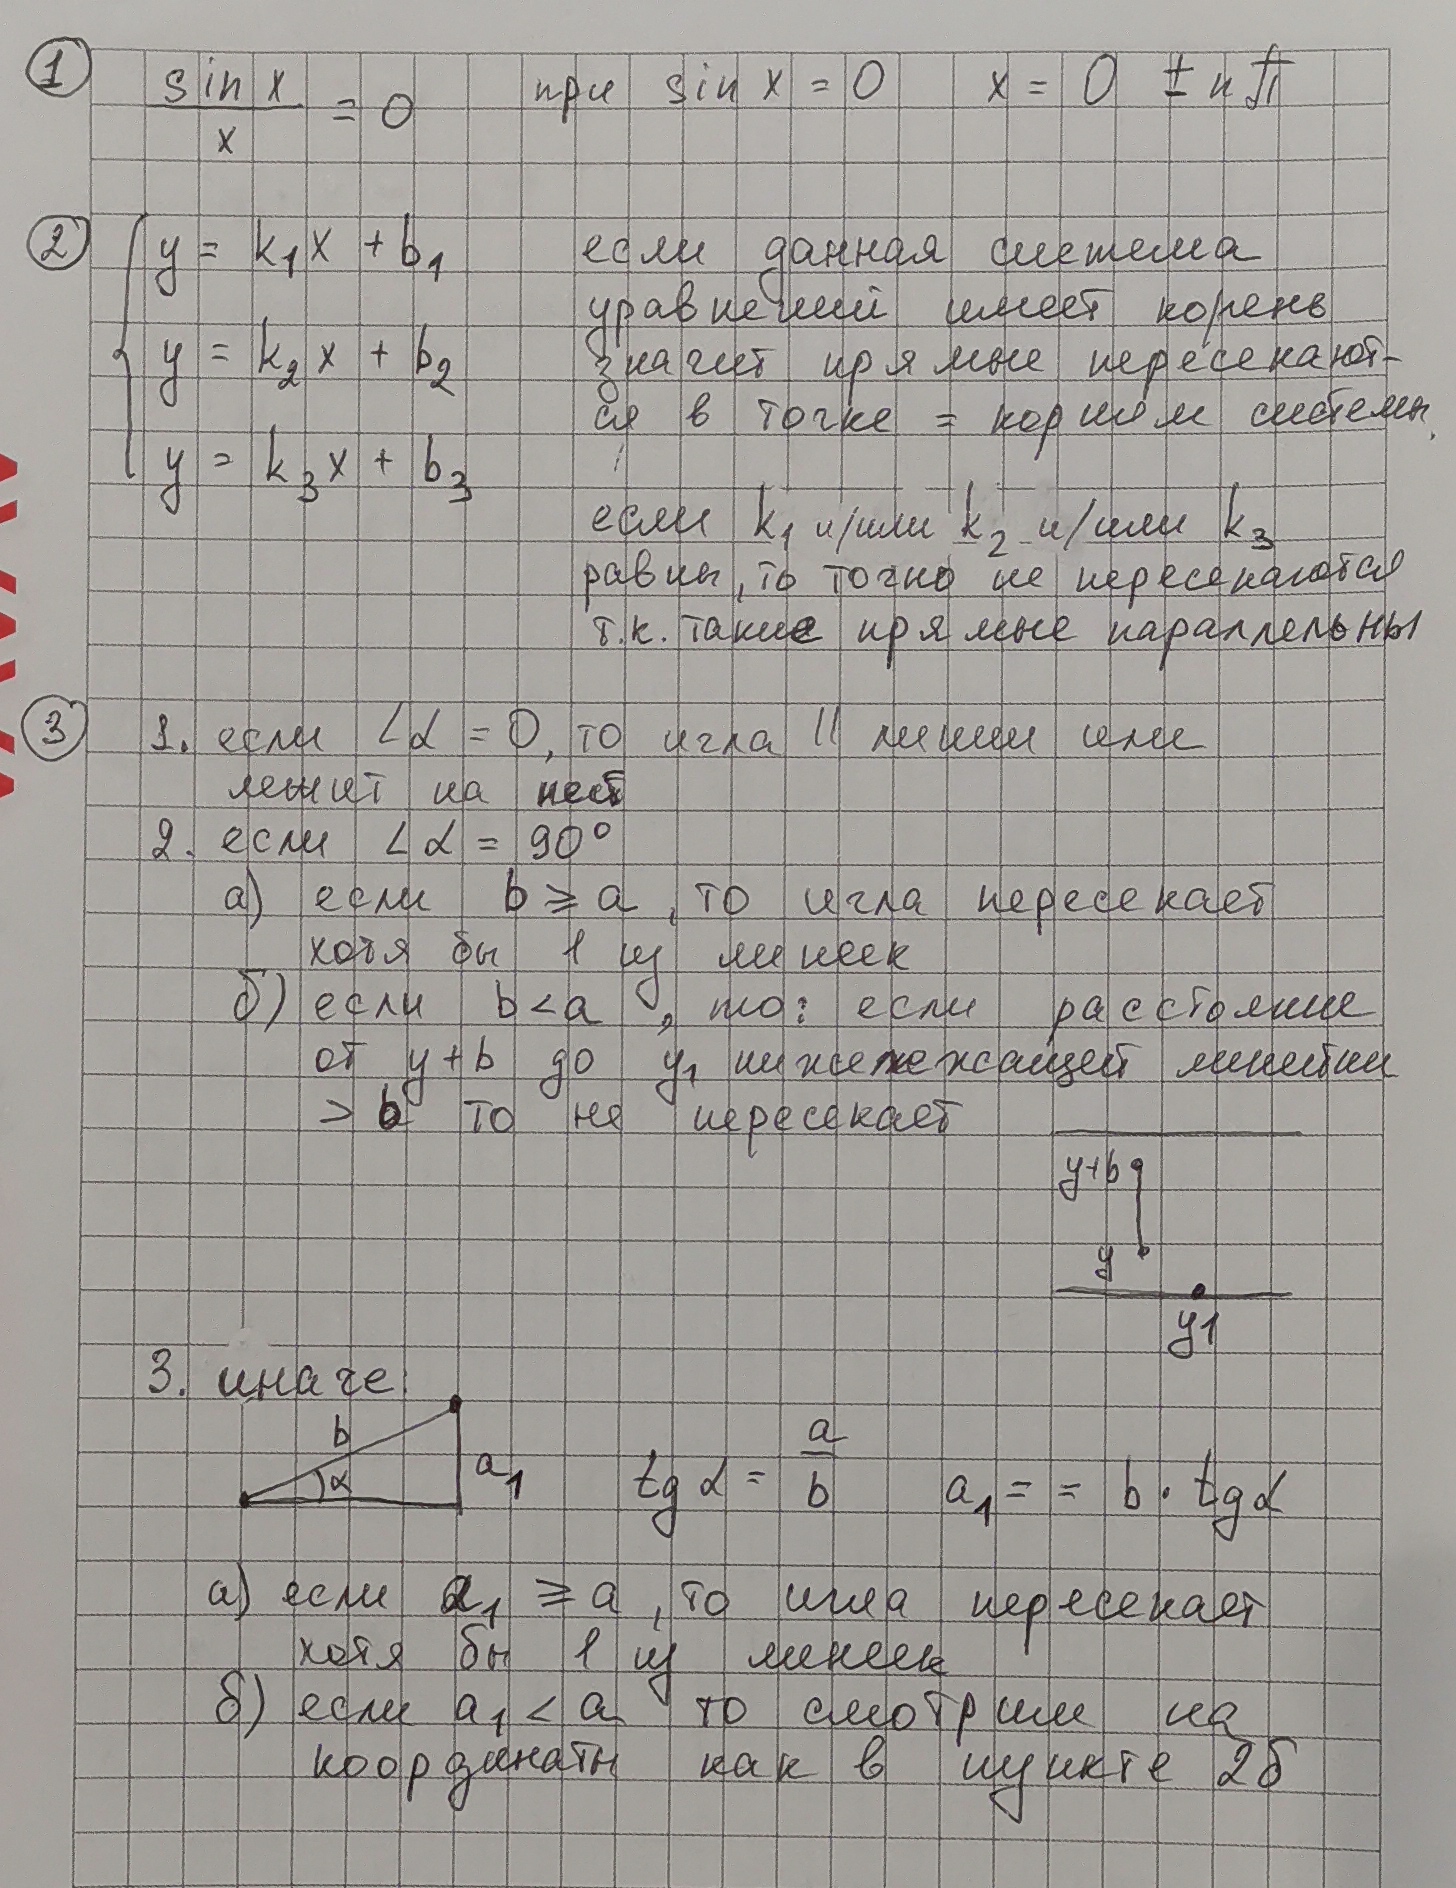 ① sin x / x = 0 при sin x = 0 x = 0 ± nπ
② y = k₁x + b₁ если данная система
уравнений имеет корень
y = k₂x + b₂ значит прямые пересекают-
ся в точке = корням системы
y = k₃x + b₃
если k₁ и/или k₂ и/или k₃
равны, то точно не пересекаются
т.к. такие прямые параллельны
③ 1. если ∠α = 0, то игла || линии или
лежит на ней
2. если ∠α = 90°
а) если b ⩾ a, то игла пересекает
хотя бы 1 из линеек
б) если b < a, то: если расстояние
от y+b до y₁ нижележащей линейки
> b то не пересекает
y+b
y
y1
3. иначе:
b
α
a₁
tg α = a / b a₁ = = b · tg α
а) если a₁ ⩾ a, то игла пересекает
хотя бы 1 из линеек
б) если a₁ < a то смотрим на
координаты как в пункте 2б